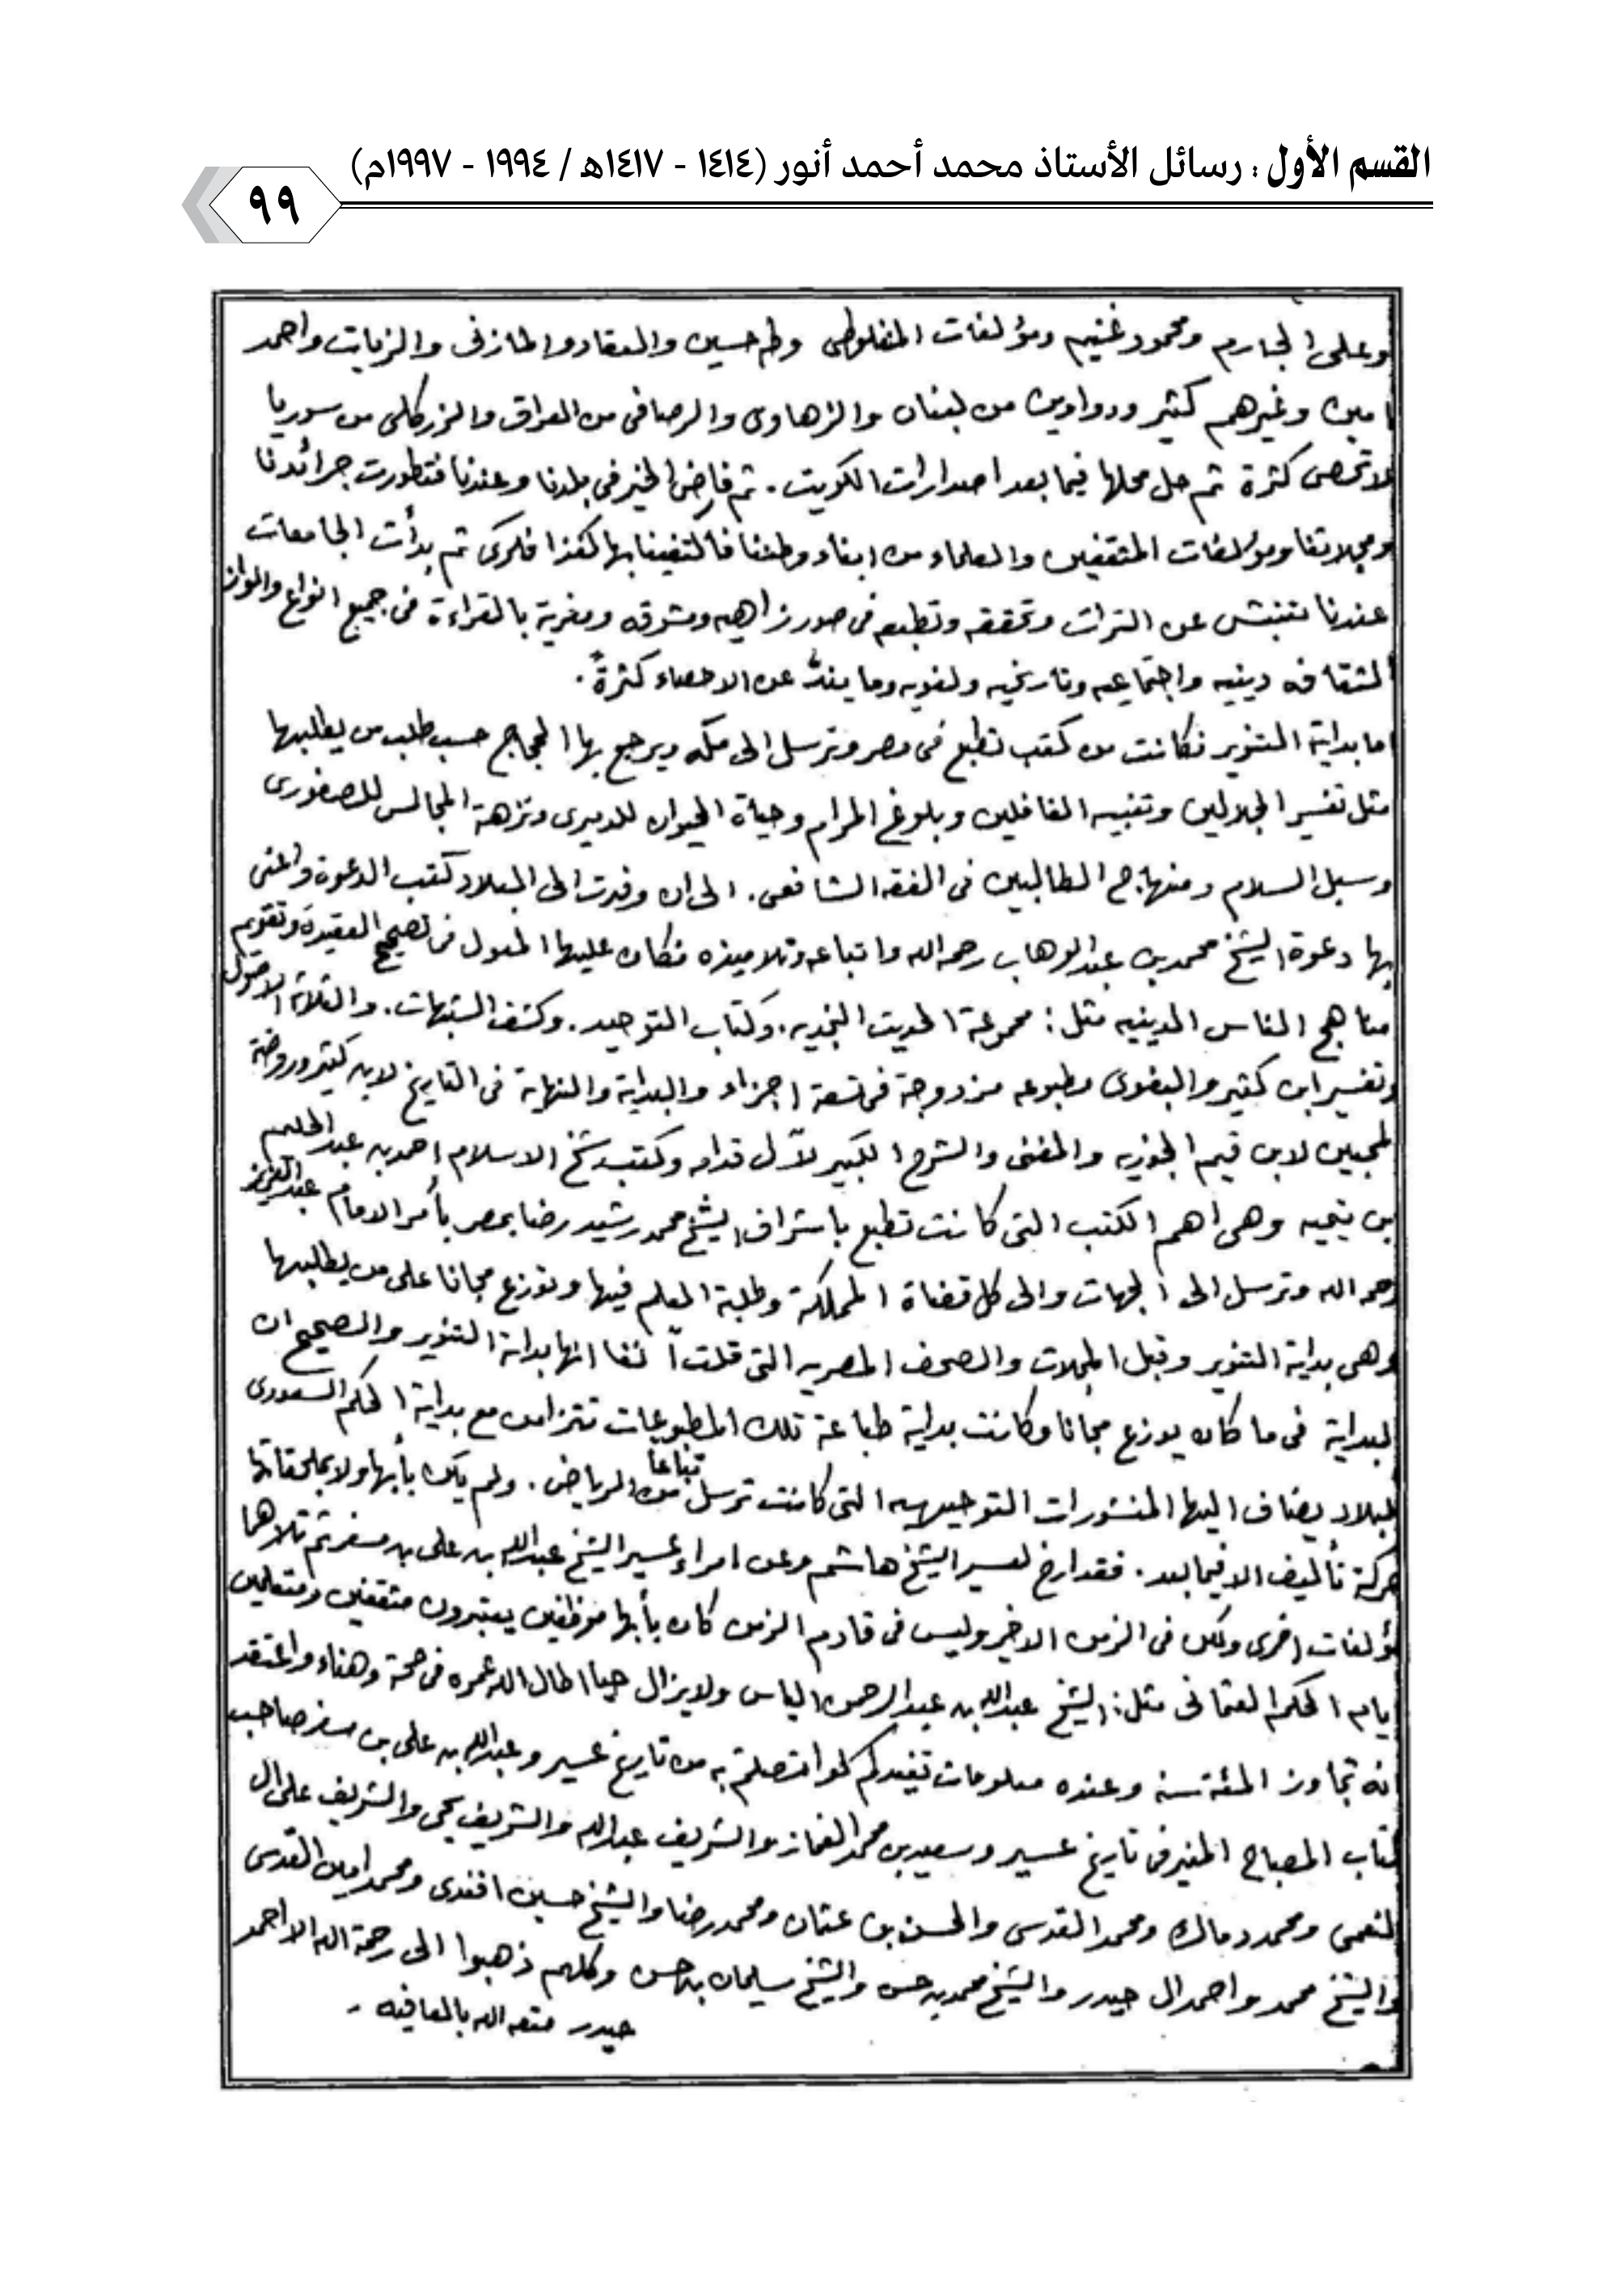 القسم الأول : رسائل الأستاذ محمد أحمد أنور (١٤١٤ - ١٤١٧هـ / ١٩٩٤ - ١٩٩٧م)
٩٩
وعلى الجارم ومحمود غنيم ومؤلفات المنفلوطى وطه حسين والعقاد والمازنى والزيات واحمد
امين وغيرهم كثير ودواوين من لبنان والزهاوى والرصافى من العراق والزركلى من سوريا
لا تحصى كثرة ثم حل محلها فيما بعد اصدارات الكويت . ثم فاض الخير فى بلدنا وعندنا فتطورت جرائدنا
ومجلاتنا ومؤلفات المثقفين والعلماء من ابناء وطننا فاكتفينا بها كغذا فكرى ثم بدأت الجامعات
عندنا تنبش عن التراث وتحققه وتطبعه فى صور زاهيه ومشوقه ومغرية بالقراءة فى جميع انواع والوان
الثقافه دينيه واجتماعيه وتاريخيه ولغويه وما يندُّ عن الاحصاء كثرةً .
اما بداية التنوير فكانت من كتب تطبع فى مصر وترسل الى مكه ويرجع بها الحجاج حسب طلب من يطلبها
مثل تفسير الجلالين وتنبيه الغافلين وبلوغ المرام وحياة الحيوان للدميرى ونزهة المجالس للصفورى
وسبل السلام ومنهاج الطالبين فى الفقه الشافعى . الى ان وفدت الى البلاد كتب الدعوة واعنى
بها دعوة الشيخ محمد بن عبد الوهاب رحمه الله واتباعه وتلاميذه فكان عليها المعول فى تصحيح العقيدة وتقويم
مناهج الناس الدينيه مثل : مجموعة الحديث النجديه . وكتاب التوحيد . وكشف الشبهات . والثلاثة الاصول
وتفسير ابن كثير والبغوى مطبوعه مزدوجة فى تسعة اجزاء والبداية والنهاية فى التاريخ لابن كثير وروضة
المحبين لابن قيم الجوزيه والمغنى والشرح الكبير لآل قدامه وكتب شيخ الاسلام احمد بن عبد الحليم
بن تيميه وهى اهم الكتب التى كانت تطبع باشراف الشيخ محمد رشيد رضا بمصر بأمر الامام عبد العزيز
رحمه الله وترسل الى الجهات والى كل قضاة المملكة وطلبة العلم فيها وتوزع مجانا على من يطلبها
وهى بداية التنوير وقبل المجلات والصحف المصريه التى قلت آنفا انها بداية التنوير والصحيح ان
البداية فى ما كان يوزع مجانا وكانت بداية طباعة تلك المطبوعات تتزامن مع بداية الحكم السعودى
للبلاد يضاف اليها المنشورات التوجيهيه التى كانت ترسل تباعاً من الرياض . ولم يكن بأبها ولا بملحقاتها
حركة تأليف الا فيما بعد . فقد ارخ لعسير الشيخ هاشم وعن امراء عسير الشيخ عبد الله بن على بن مسفر ثم تلاهما
مؤلفات اخرى ولكن فى الزمن الاخير وليس فى قادم الزمن كان بأبها موظفين يعتبرون مثقفين ومتعلمين
ايام الحكم العثمانى مثل : الشيخ عبد الله بن عبد الرحمن الياس ولا يزال حيا اطال الله عمره فى صحة وهناء واعتقد
انه تجاوز المئة سنه وعنده معلومات تفيدكم لو اتصلتم به من تاريخ عسير وعبد الله بن على بن مسفر صاحب
كتاب المصباح المنير فى تاريخ عسير وسعيد بن محمد الغماز والشريف عبد الله والشريف يحيى والشريف على ال
النعمى ومحمد دمالك ومحمد القدسى والحسن بن عثمان ومحمد رضا والشيخ حسين افندى ومحمد امين القدسى
والشيخ محمد واحمد ال حيدر والشيخ محمد بن حسن والشيخ سليمان بن حسن وكلهم ذهبوا الى رحمة الله الا احمد
حيدر متعه الله بالعافيه -